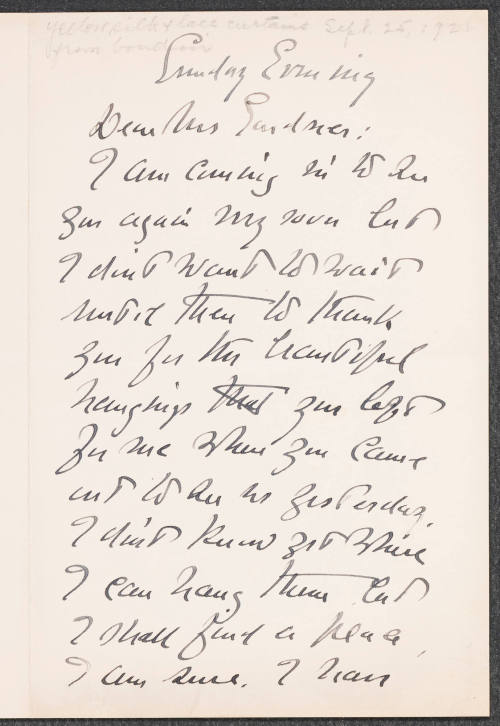 yellow silk & lace curtains Sept. 25, 192
from boudoir
Sunday Evening
Dear Mrs Gardner:
I am coming in to see
you again very soon but
I don't want to wait
until then to thank
you for the beautiful
hangings that you left
for me when you came
out to see us yesterday.
I don't know yet where
I can hang them but
I shall find a place,
I am sure. I have